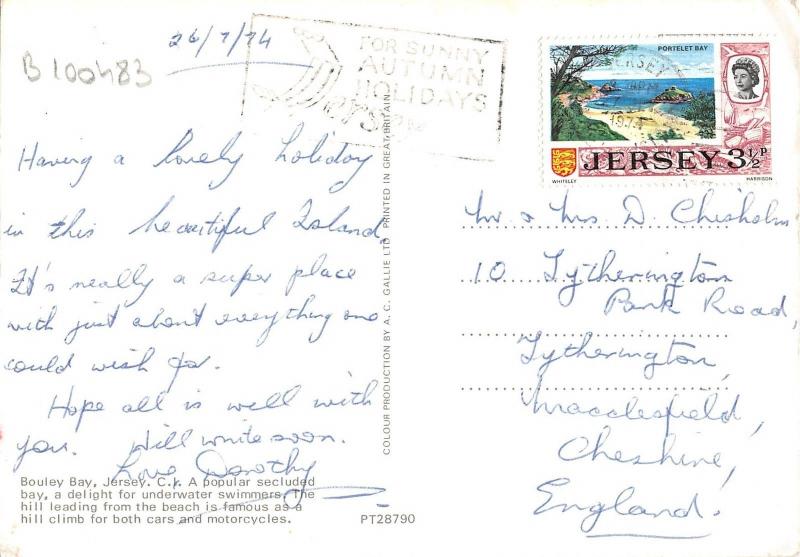 26/7/74
B100483
FOR SUNNY
AUTUMN
HOLIDAYS
Having a lovely holiday
in this beautiful Island.
It's really a super place
with just about everything one
could wish for.
Hope all is well with
you. Will write soon.
Love Dorothy
Bouley Bay, Jersey. C.I. A popular secluded
bay, a delight for underwater swimmers. The
hill leading from the beach is famous as a
hill climb for both cars and motorcycles.
PT28790
COLOUR PRODUCTION BY A. C. GALLIE LTD PRINTED IN GREAT BRITAIN
PORTELET BAY
JERSEY
1974
JERSEY 3½P
WHITELEY HARRISON
Mr & Mrs D. Chisholm
10 Tytherington
Park Road,
Tytherington,
Macclesfield,
Cheshire,
England.